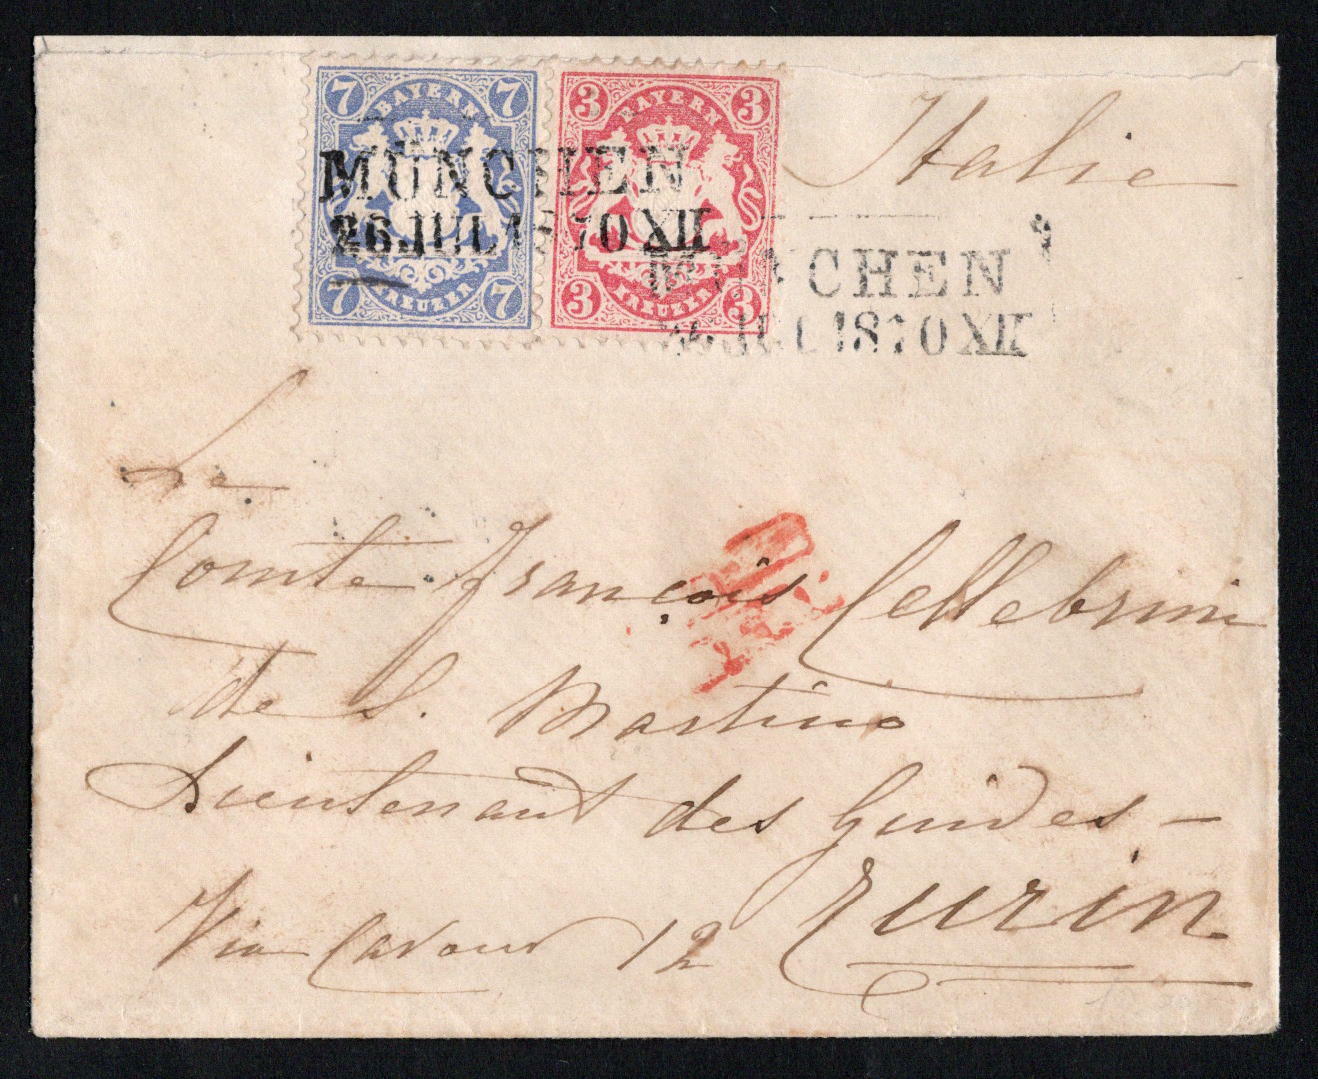 7 BAYERN 7
7 KREUZER 7
3 BAYERN 3
3 KREUZER 3
MÜNCHEN
26.JUL.1870 XII
Italie
MÜNCHEN
26.JUL.1870 XII
Le
Comte François Cellebrini
de S. Martino
Lieutenant des Guides -
Via Cavour 12 Turin